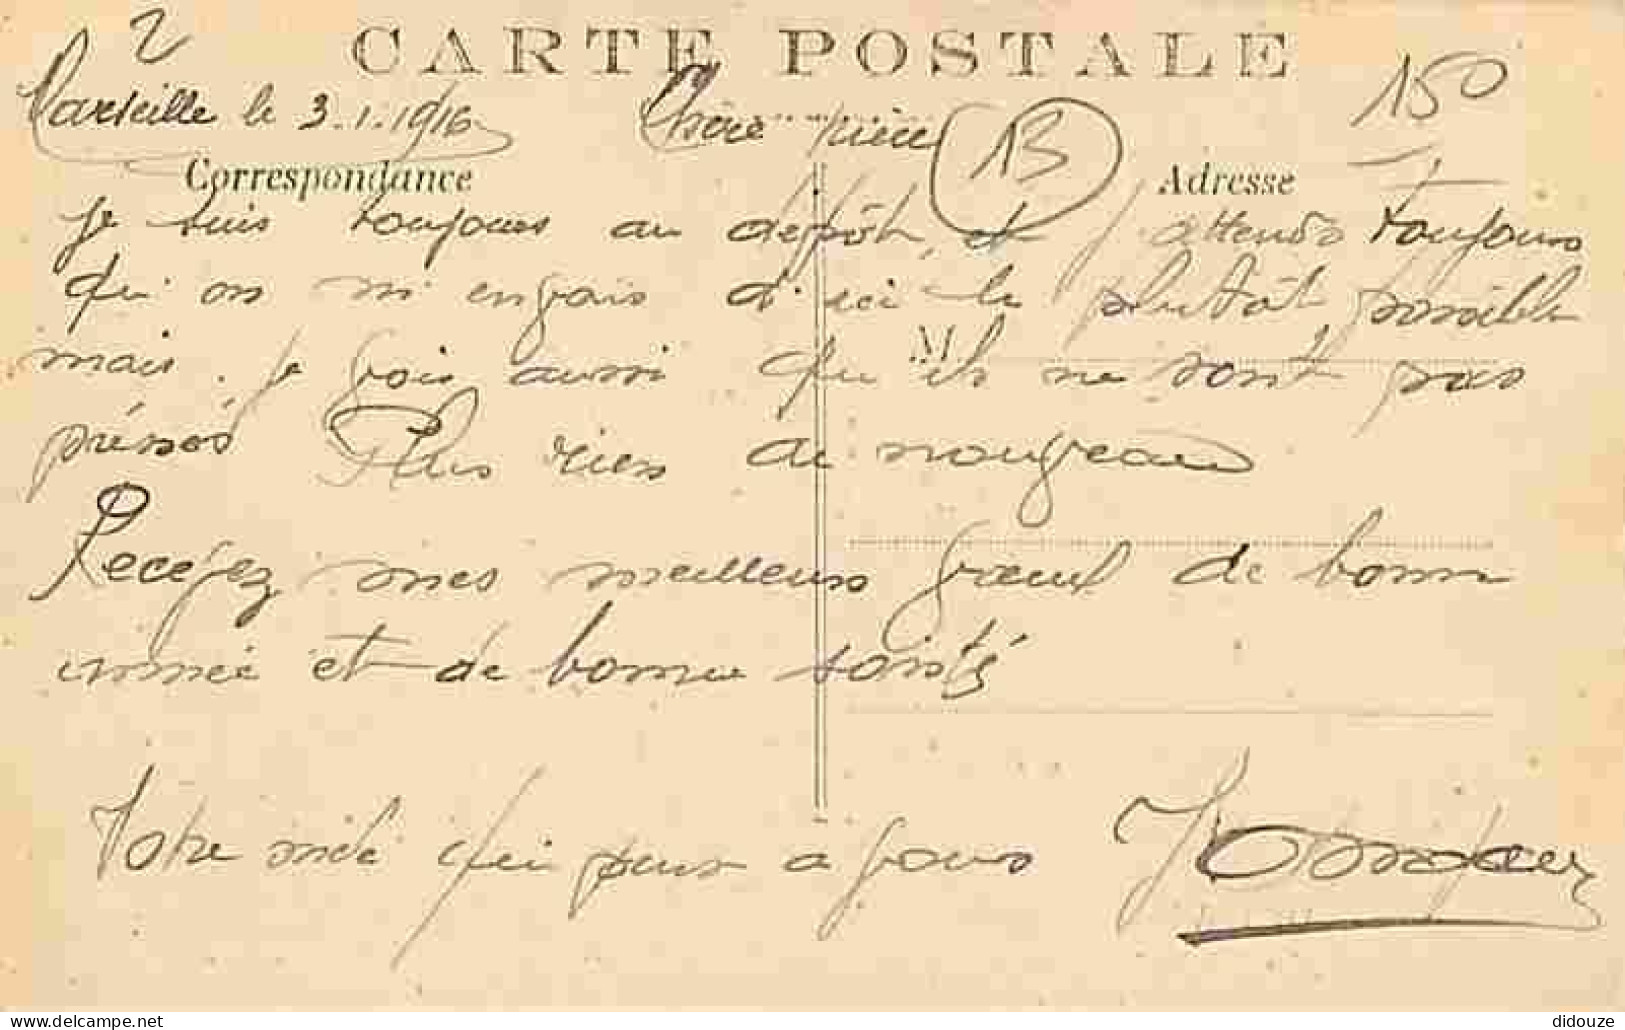 2
CARTE POSTALE
Marseille le 3.1.1916 Chère nièce 13 150
Correspondance Adresse
Je suis toujours au dépôt, et j'attends toujours
qu'on m'envois d'ici le plutôt possible
M
mais je vois aussi qu'ils ne sont pas
préssés Plus rien de nouveau
Recevez mes meilleurs vœux de bonne
année et de bonne santé
Votre qui pense a vous
didouze